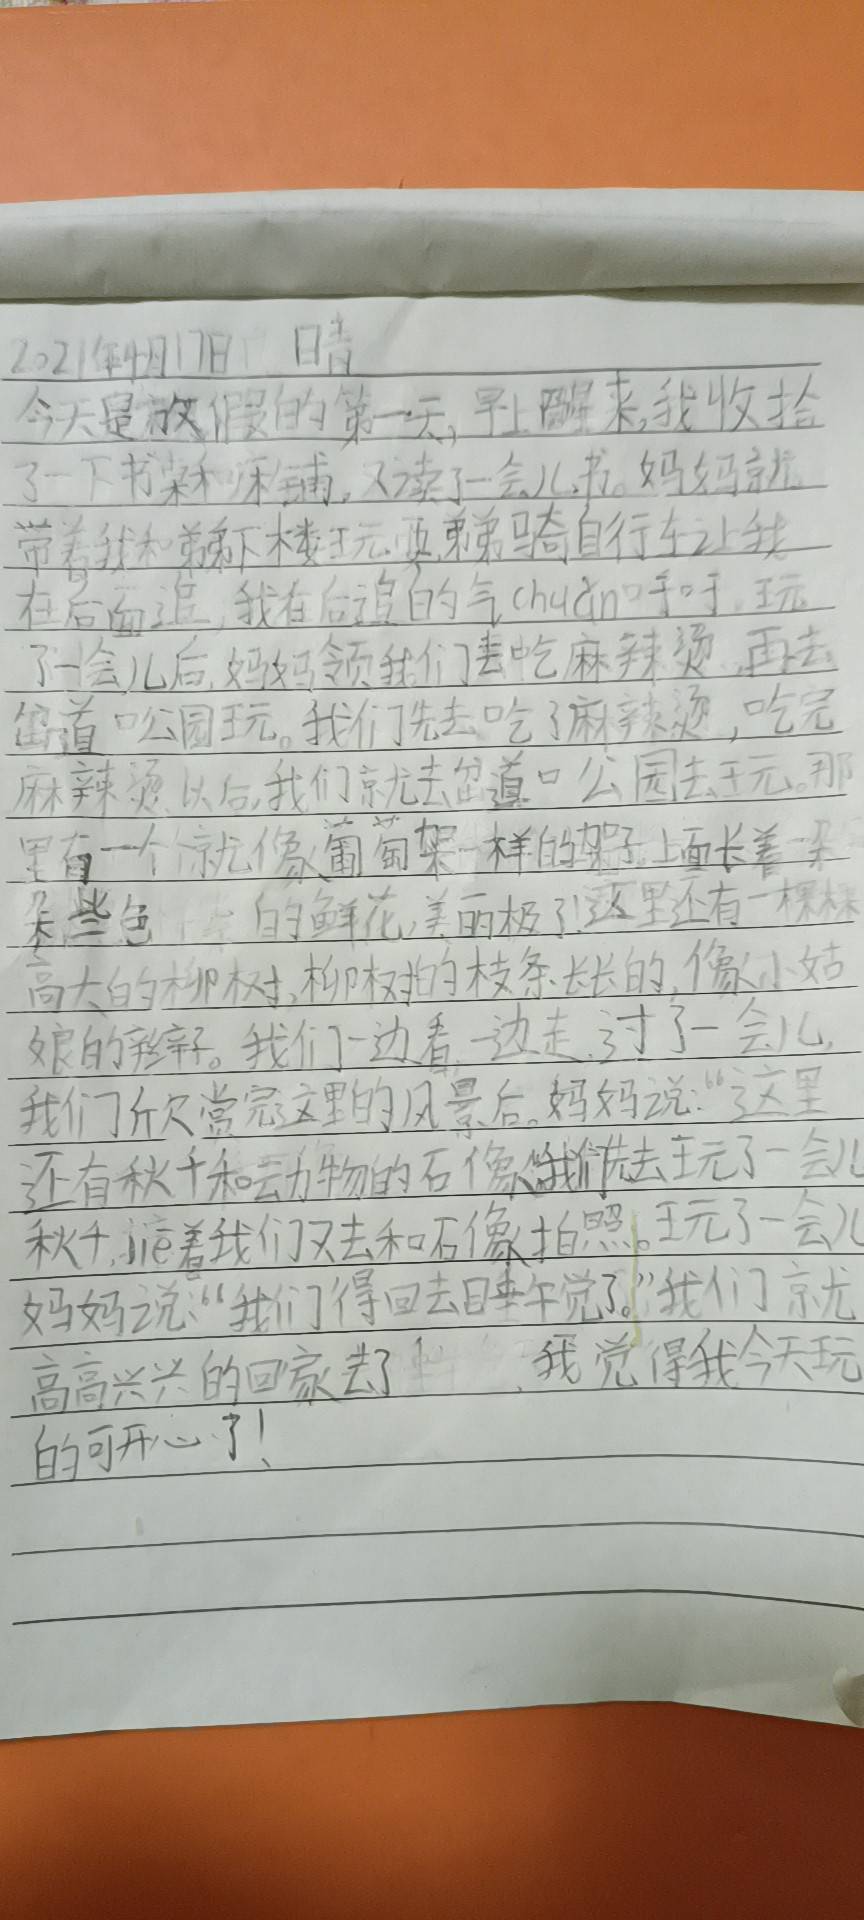 2021年4月17日 晴
今天是放假的第一天，早上醒来，我收拾
了一下书桌和床铺，又读了一会儿书。妈妈就
带着我和弟弟下楼玩耍，弟弟骑自行车让我
在后面追，我在后追的气chuǎn吁吁，玩
了一会儿后，妈妈领我们去吃麻辣烫，再去
岔道口公园玩。我们先去吃了麻辣烫，吃完
麻辣烫以后，我们就去岔道口公园去玩。那
里有一个就像葡萄架一样的架子上面长着一朵
朵些色的鲜花，美丽极了！这里还有一棵棵
高大的柳树，柳树的枝条长长的，像小姑
娘的辫子。我们一边看，一边走，过了一会儿，
我们欣赏完这里的风景后。妈妈说：“这里
还有秋千和动物的石像”我们先去玩了一会儿
秋千，jiē着我们又去和石像拍照。玩了一会儿
妈妈说：“我们得回去睡午觉了。”我们就
高高兴兴的回家去了，我觉得我今天玩
的可开心了！